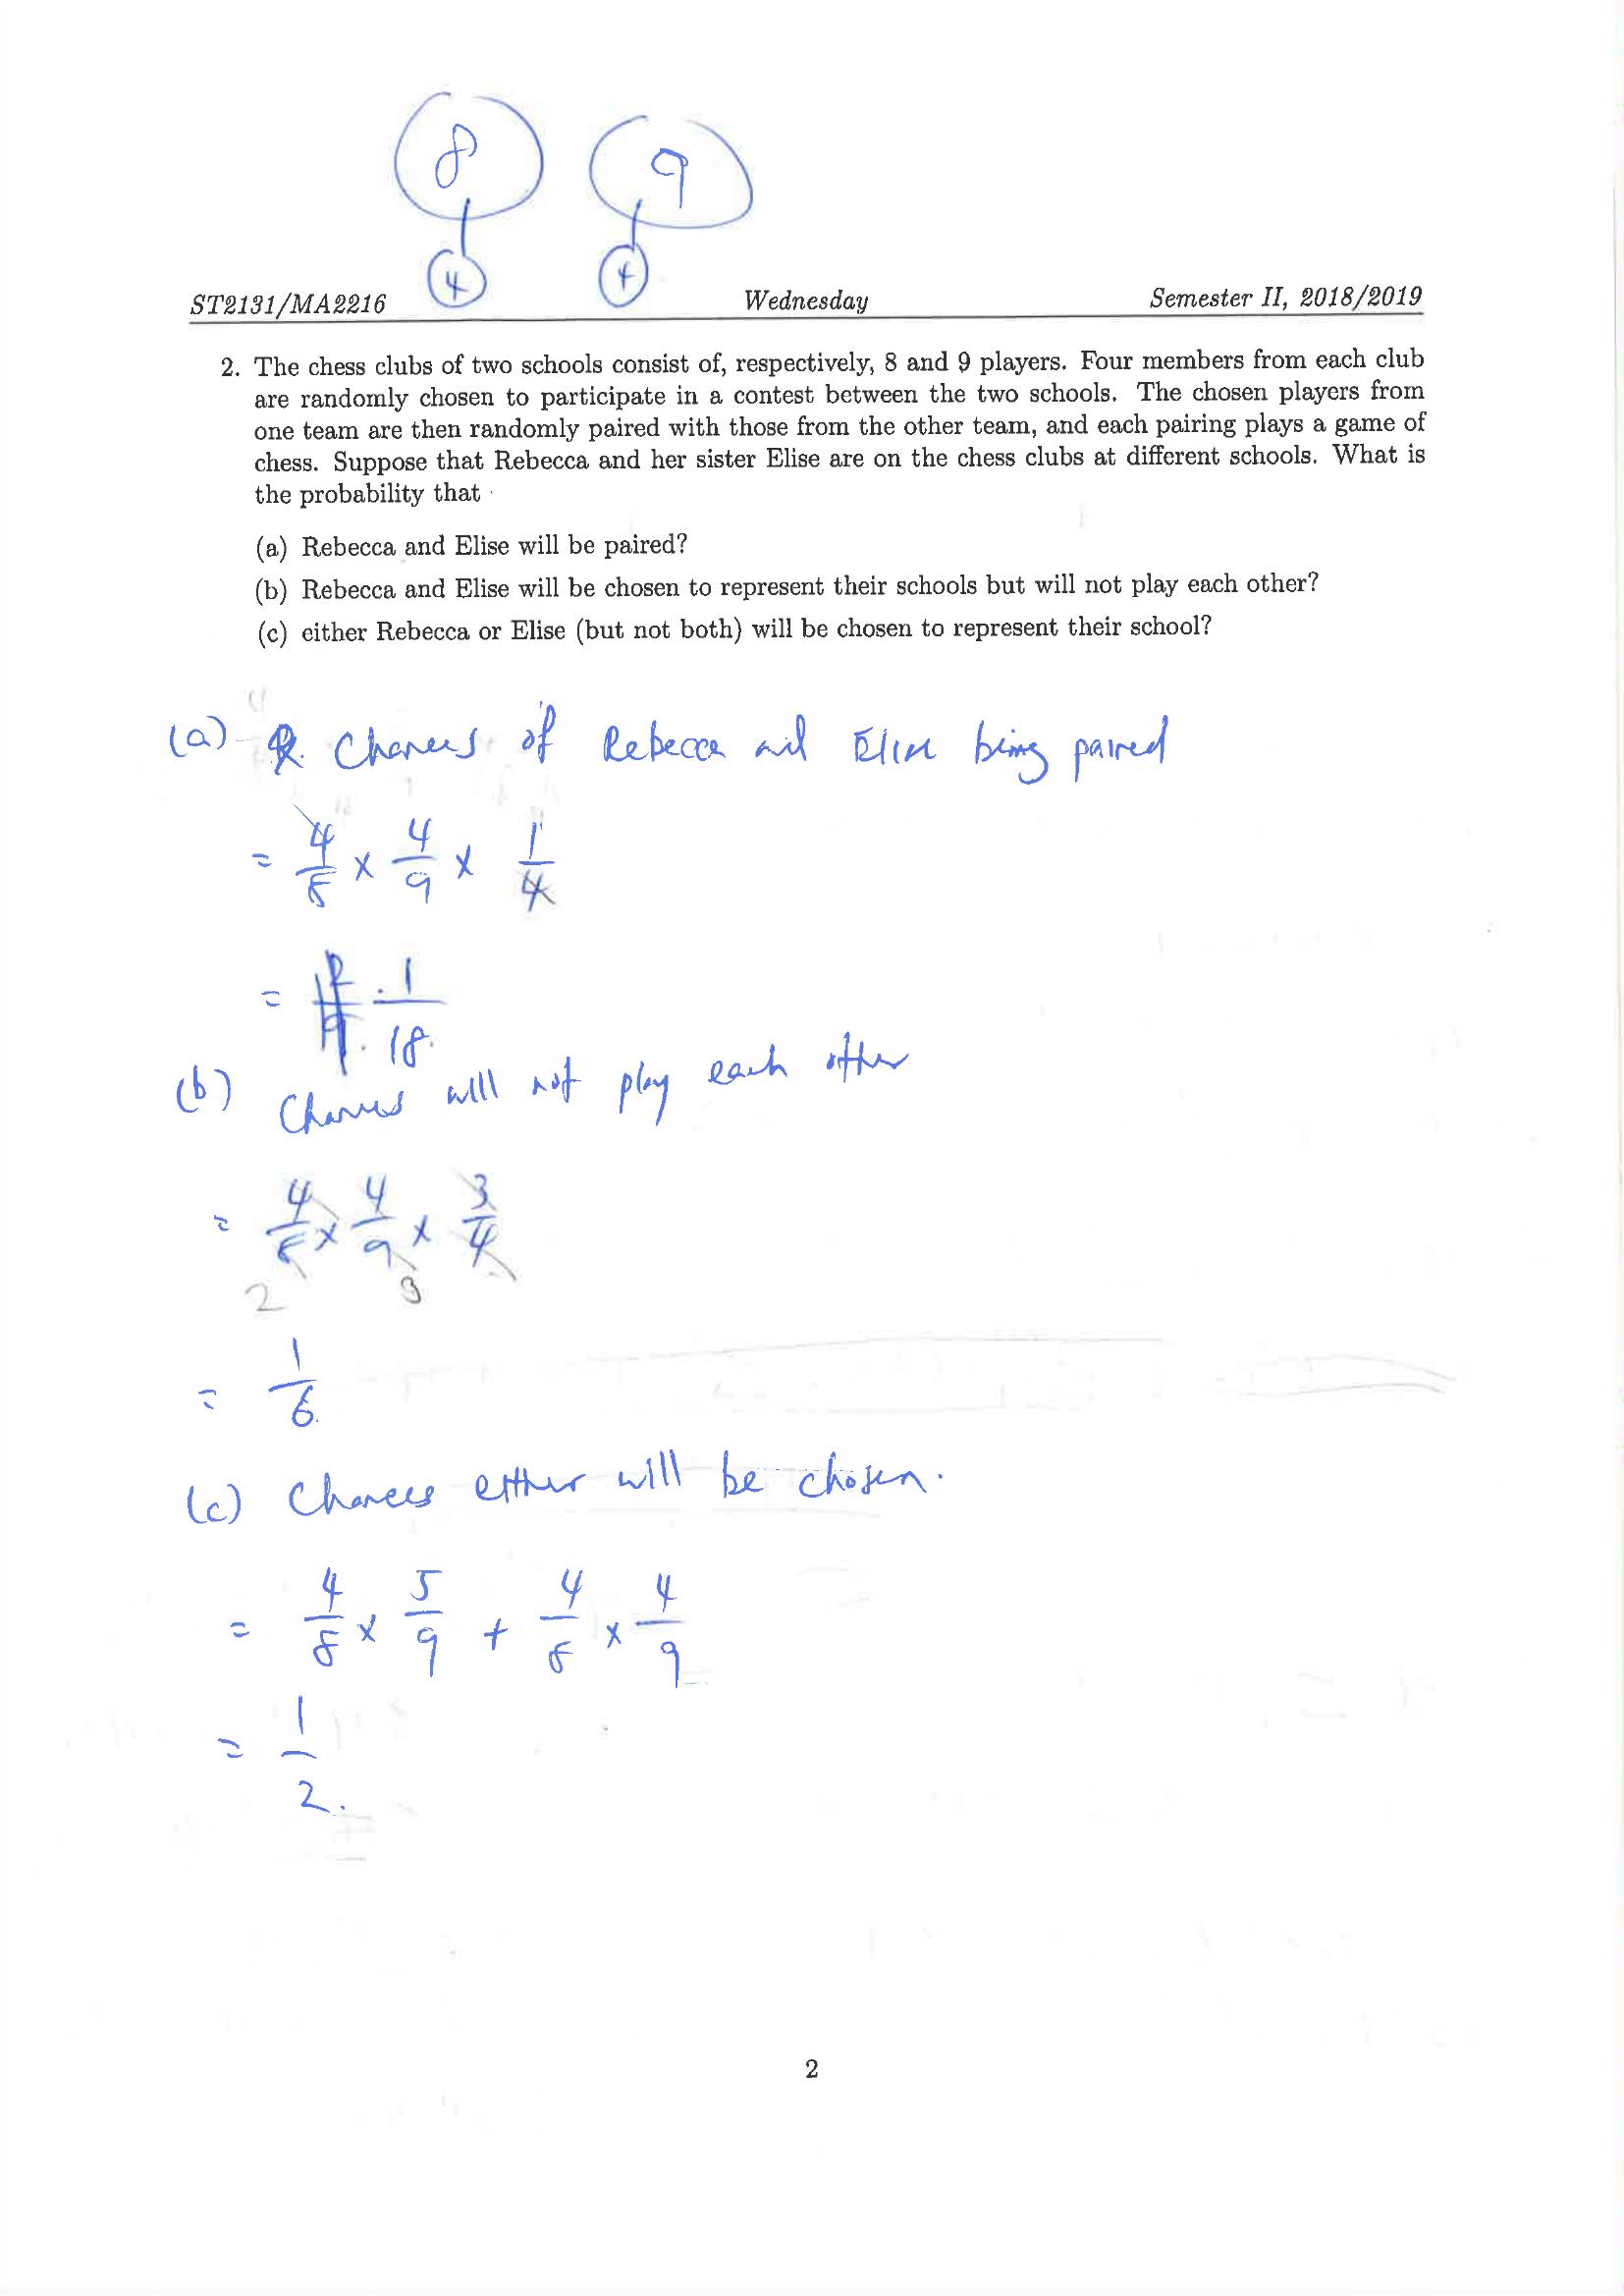 8 9
4 4
ST2131/MA2216 Wednesday Semester II, 2018/2019
2. The chess clubs of two schools consist of, respectively, 8 and 9 players. Four members from each club
are randomly chosen to participate in a contest between the two schools. The chosen players from
one team are then randomly paired with those from the other team, and each pairing plays a game of
chess. Suppose that Rebecca and her sister Elise are on the chess clubs at different schools. What is
the probability that
(a) Rebecca and Elise will be paired?
(b) Rebecca and Elise will be chosen to represent their schools but will not play each other?
(c) either Rebecca or Elise (but not both) will be chosen to represent their school?
(a) Chances of Rebecca and Elise being paired
= 4/8 × 4/9 × 1/4
= 1/18.
(b) Chances will not play each other
= 4/8 × 4/9 × 3/4
2 3
= 1/6.
(c) Chances either will be chosen.
= 4/8 × 5/9 + 4/8 × 4/9
= 1/2.
2